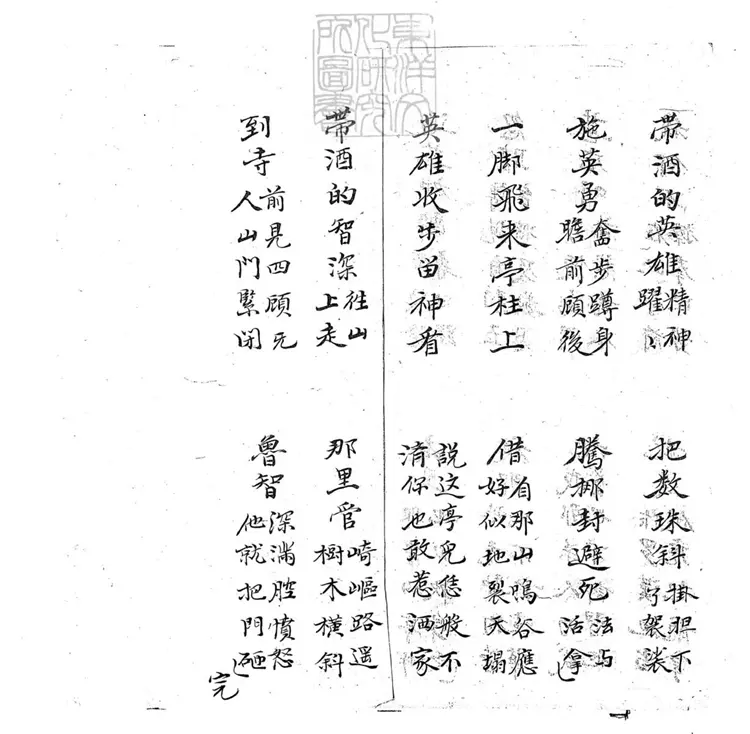 東洋文化研究所圖書
帶酒的英雄精神躍〻
把数珠斜掛胆下了袈裟
施英勇奮步蹲身瞻前顧後
騰挪封避死法与活拿
一脚飛来亭柱上
那山鳴谷應好似地裂天塌
英雄收步留神看
説这亭児恁般不済你也敢惹洒家
帶酒的智深往山上走
那里管崎嶇路遥樹木横斜
到寺前見四顧无人山門緊閉
魯智深滿腔憤怒他就把門砸
完